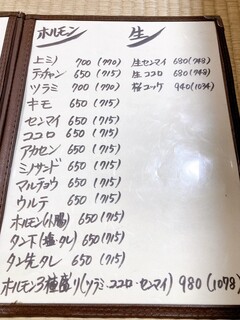 ホルモン
上ミノ 700 (770)
テッチャン 650 (715)
ツラミ 700 (770)
キモ 650 (715)
センマイ 650 (715)
ココロ 650 (715)
アカセン 650 (715)
ミノサンド 650 (715)
マルチョウ 650 (715)
ウルテ 650 (715)
ホルモン(小腸) 650 (715)
タン下(塩・タレ) 650 (715)
タン先タレ 650 (715)
ホルモン3種盛り(ツラミ・ココロ・センマイ) 980 (1078)
生
生センマイ 680 (748)
生ココロ 680 (748)
桜ユッケ 940 (1034)